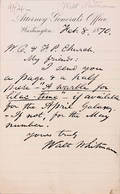 Walt Whitman
Attorney General's Office,
Washington, Feb. 8, 1870.
W. C. & F. P. Church.
My friends:
I send you
a page & a half
piece - A warble for
lilac-time - if available
for the April Galaxy
- If not, for the May
number.
Yours truly
Walt Whitman